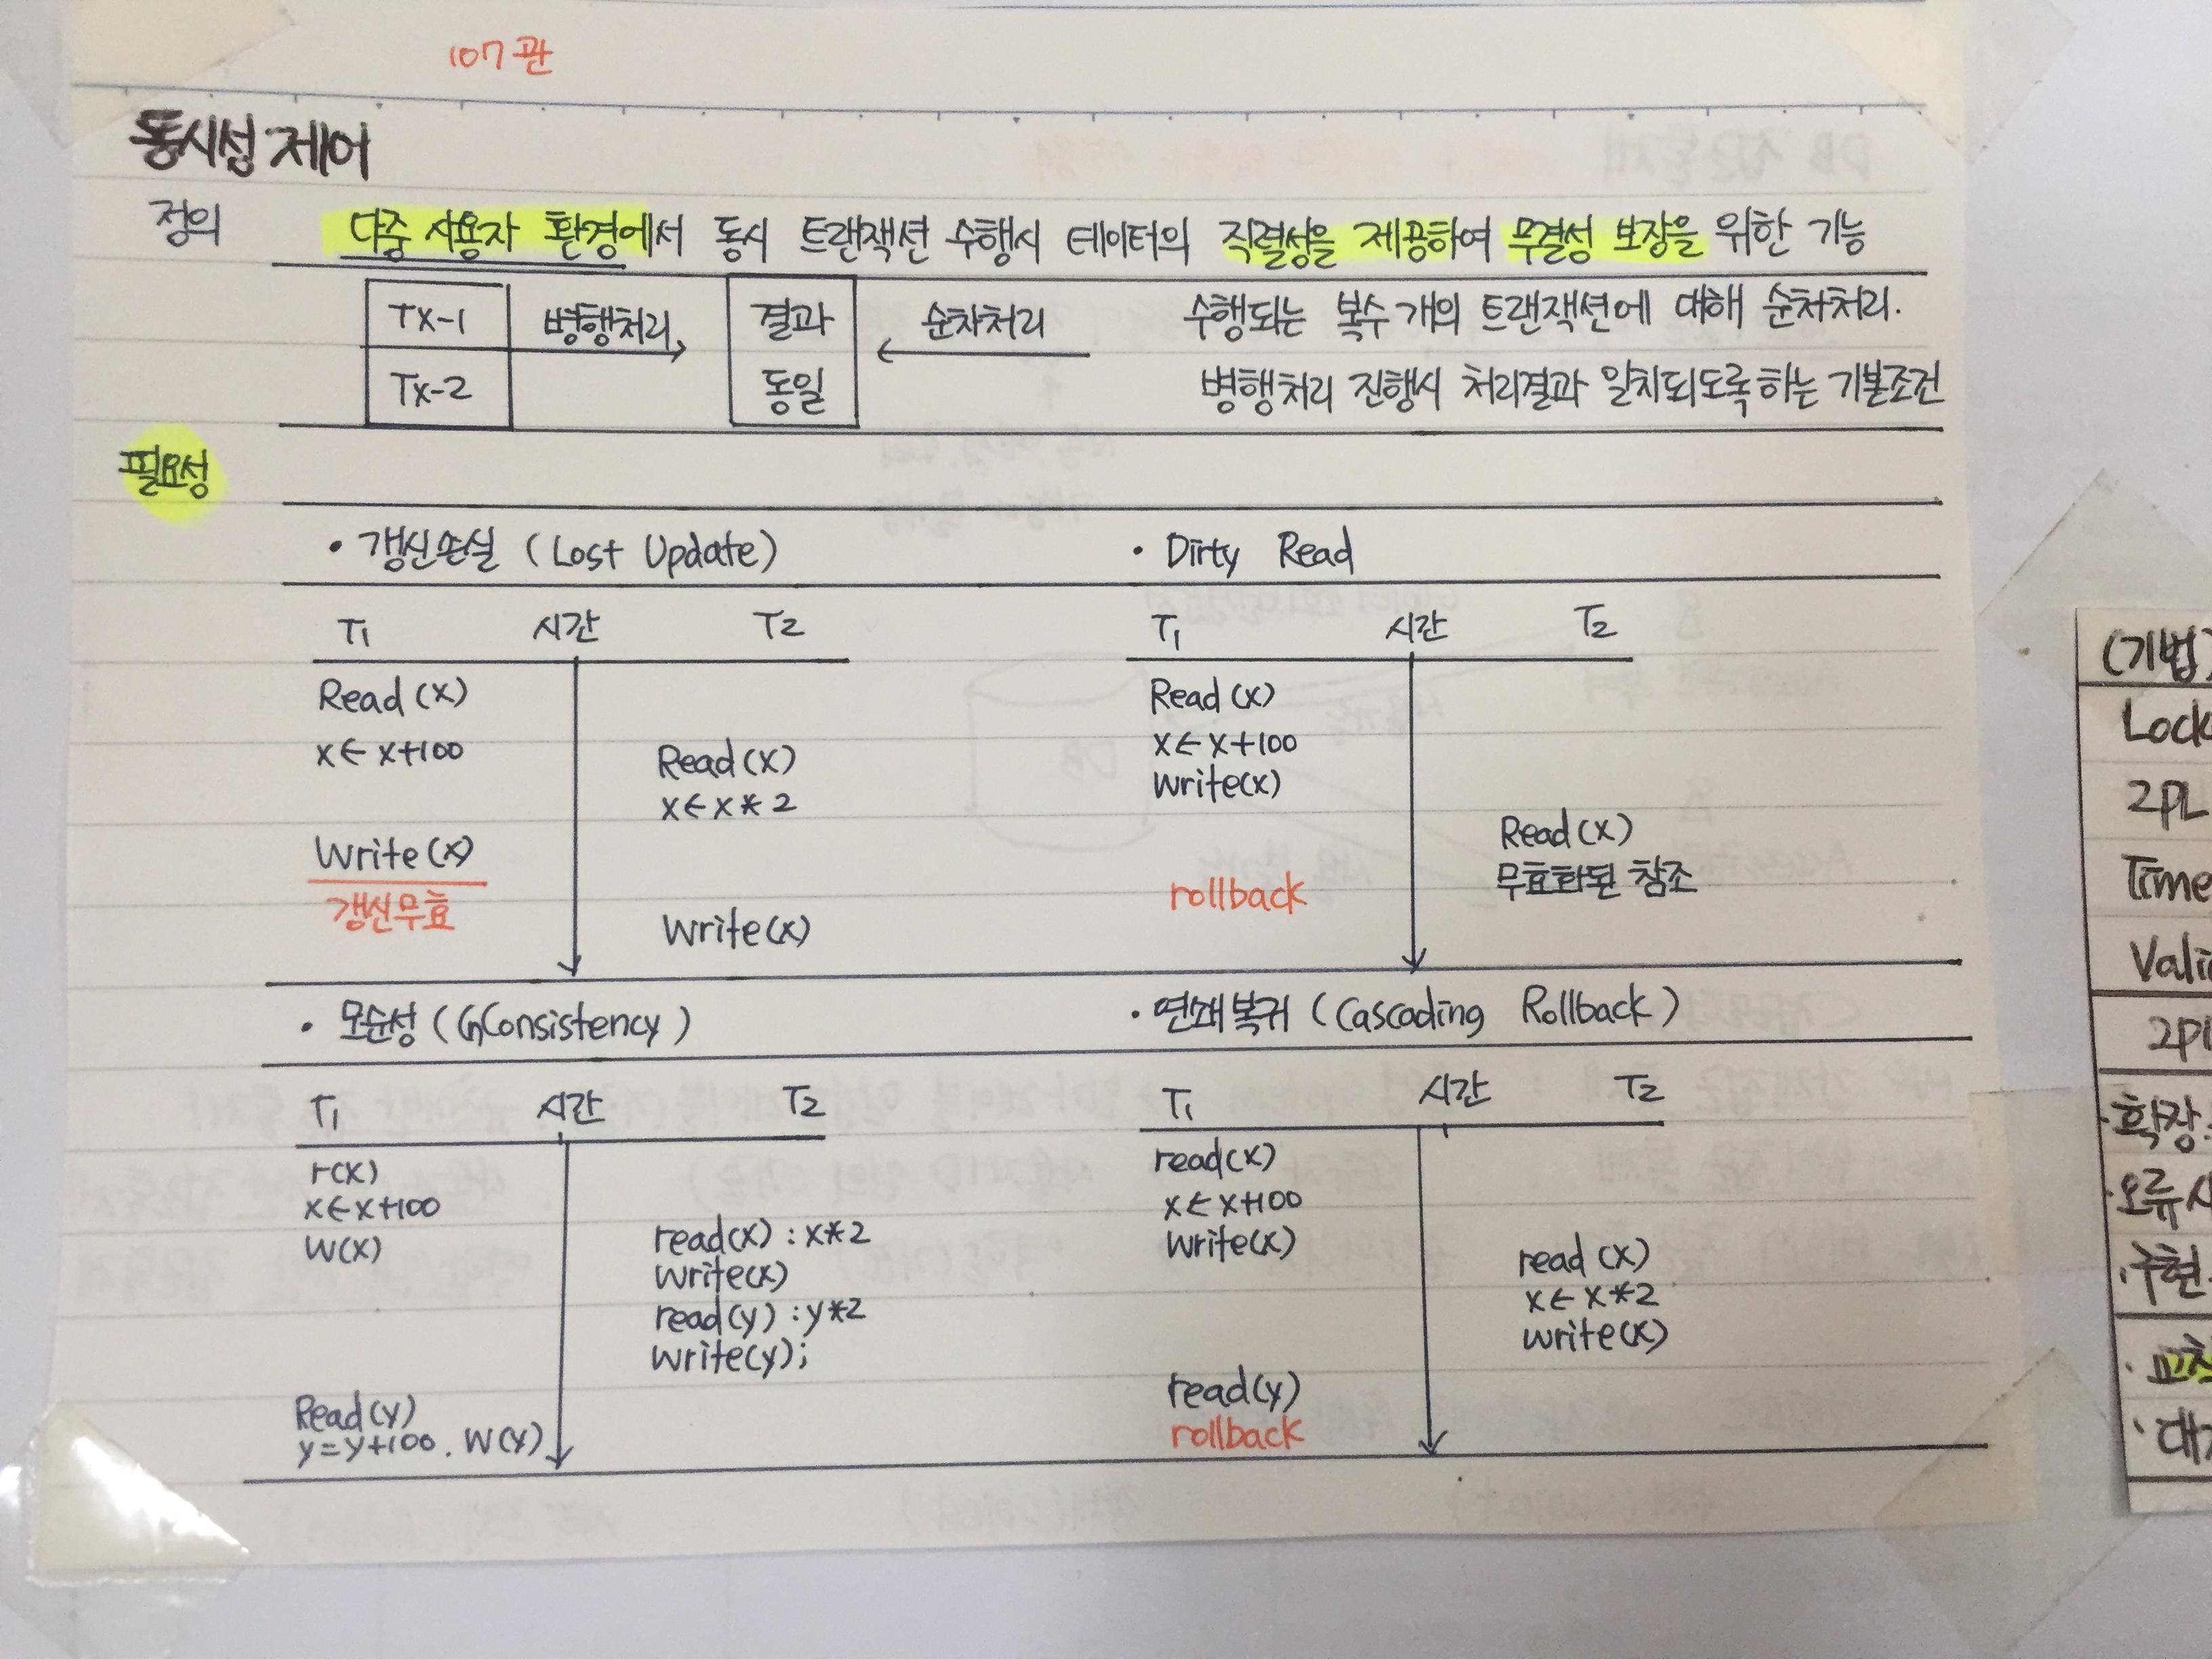 107관
동시성 제어
정의 다중 사용자 환경에서 동시 트랜잭션 수행시 데이터의 직렬성을 제공하여 무결성 보장을 위한 기능
Tx-1 병행처리 결과 순차처리 수행되는 복수개의 트랜잭션에 대해 순차처리.
Tx-2 동일 병행처리 진행시 처리결과 일치되도록하는 기본조건
필요성
• 갱신손실 (Lost Update)
T1 시간 T2
Read(x)
x←x+100
Read(x)
x←x*2
Write(x)
갱신무효
Write(x)
• Dirty Read
T1 시간 T2
Read(x)
x←x+100
Write(x)
Read(x)
무효화된 참조
rollback
• 모순성 (InConsistency)
T1 시간 T2
r(x)
x←x+100
W(x)
read(x) : x*2
Write(x)
read(y) : y*2
Write(y);
Read(y)
y=y+100. W(y)
• 연쇄복귀 (Cascading Rollback)
T1 시간 T2
read(x)
x←x+100
Write(x)
read(x)
x←x*2
write(x)
read(y)
rollback
(기법)
Lock
2PL
Time
Vali
2PL
·확장
·오류
·구현